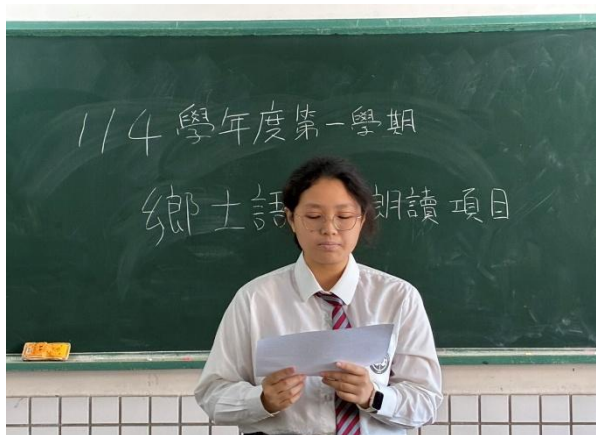 114學年度第一學期
鄉土語 朗讀項目